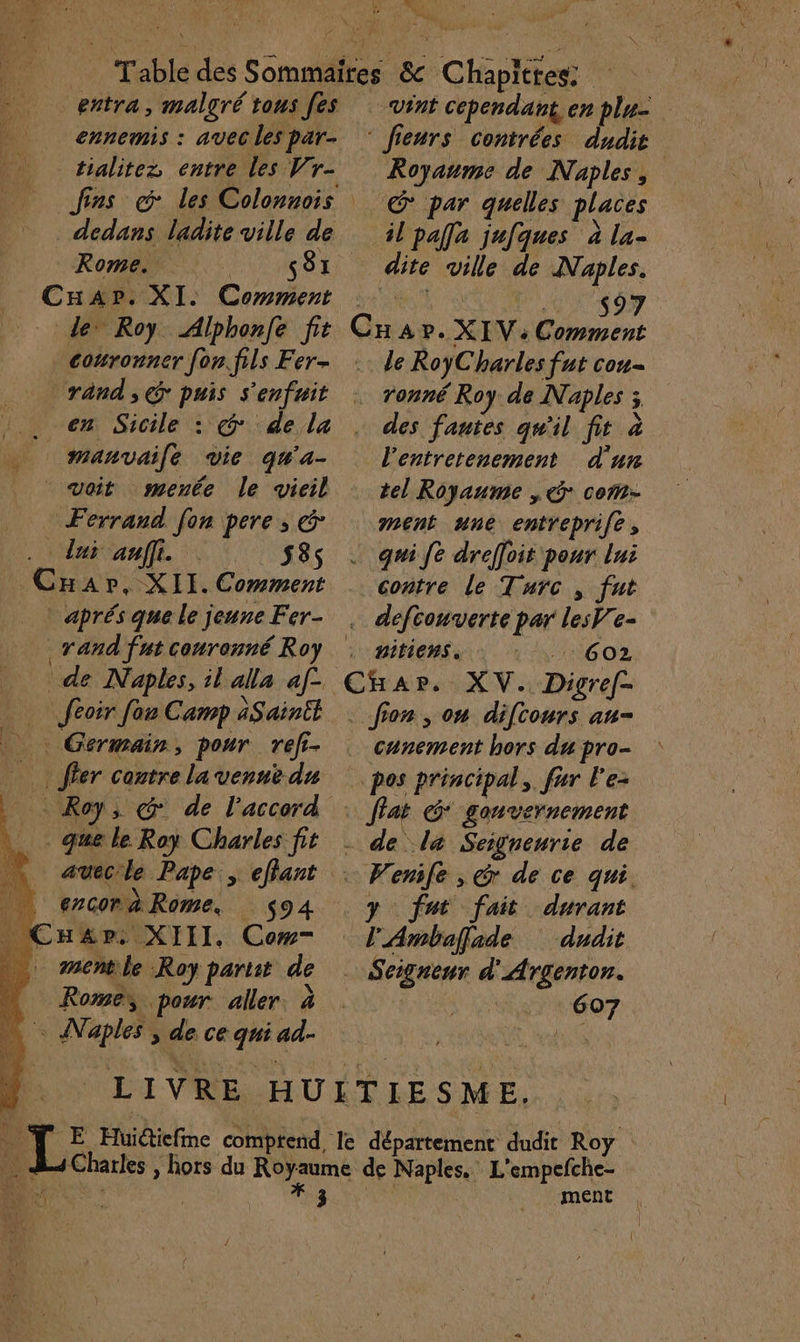 Table des Sommaires & Chapitres:
entra, malgré tous ſes
ennemis : avec les par-
tialitez entre les Vr-
ſins & les Colonnois
dedans ladite ville de
Rome. 581
CHAP. XI. Comment
le Roy Alphonſe fit
couronner ſon fils Fer-
rand, & puis s'enfuit
en Sicile : & de la
mauvaiſe vie qu'a-
voit menée le vieil
Ferrand ſon pere, &
lui auſſi. 585
CHAP. XII. Comment
aprés que le jeune Fer-
rand fut couronné Roy
de Naples, il alla aſ-
ſeoir ſon Camp à Sainct
Germain, pour reſi-
ſter contre la venuë du
Roy; & de l'accord
que le Roy Charles fit
avec le Pape, eſtant
encor à Rome. 594
CHAP. XIII. Com-
ment le Roy partit de
Rome, pour aller à
Naples, de ce qui ad-
vint cependant en plu-
ſieurs contrées dudit
Royaume de Naples,
& par quelles places
il paſſa juſques à la-
dite ville de Naples.
597
CHAP. XIV. Comment
le Roy Charles fut cou-
ronné Roy de Naples ;
des fautes qu'il fit à
l'entretenement d'un
tel Royaume, & com-
ment une entrepriſe,
qui ſe dreſſoit pour lui
contre le Turc, fut
deſcouverte par les Ve-
nitiens. 602
CHAP. XV. Digreſ-
ſion, ou diſcours au-
cunement hors du pro-
pos principal, ſur l'e-
ſtat & gouvernement
de la Seigneurie de
Veniſe, & de ce qui
y fut fait durant
l'Ambaſſade dudit
Seigneur d'Argenton.
607
LIVRE HUITIESME.
LE Huictieſme comprend le département dudit Roy
Charles, hors du Royaume de Naples. L'empeſche-
* 3 ment